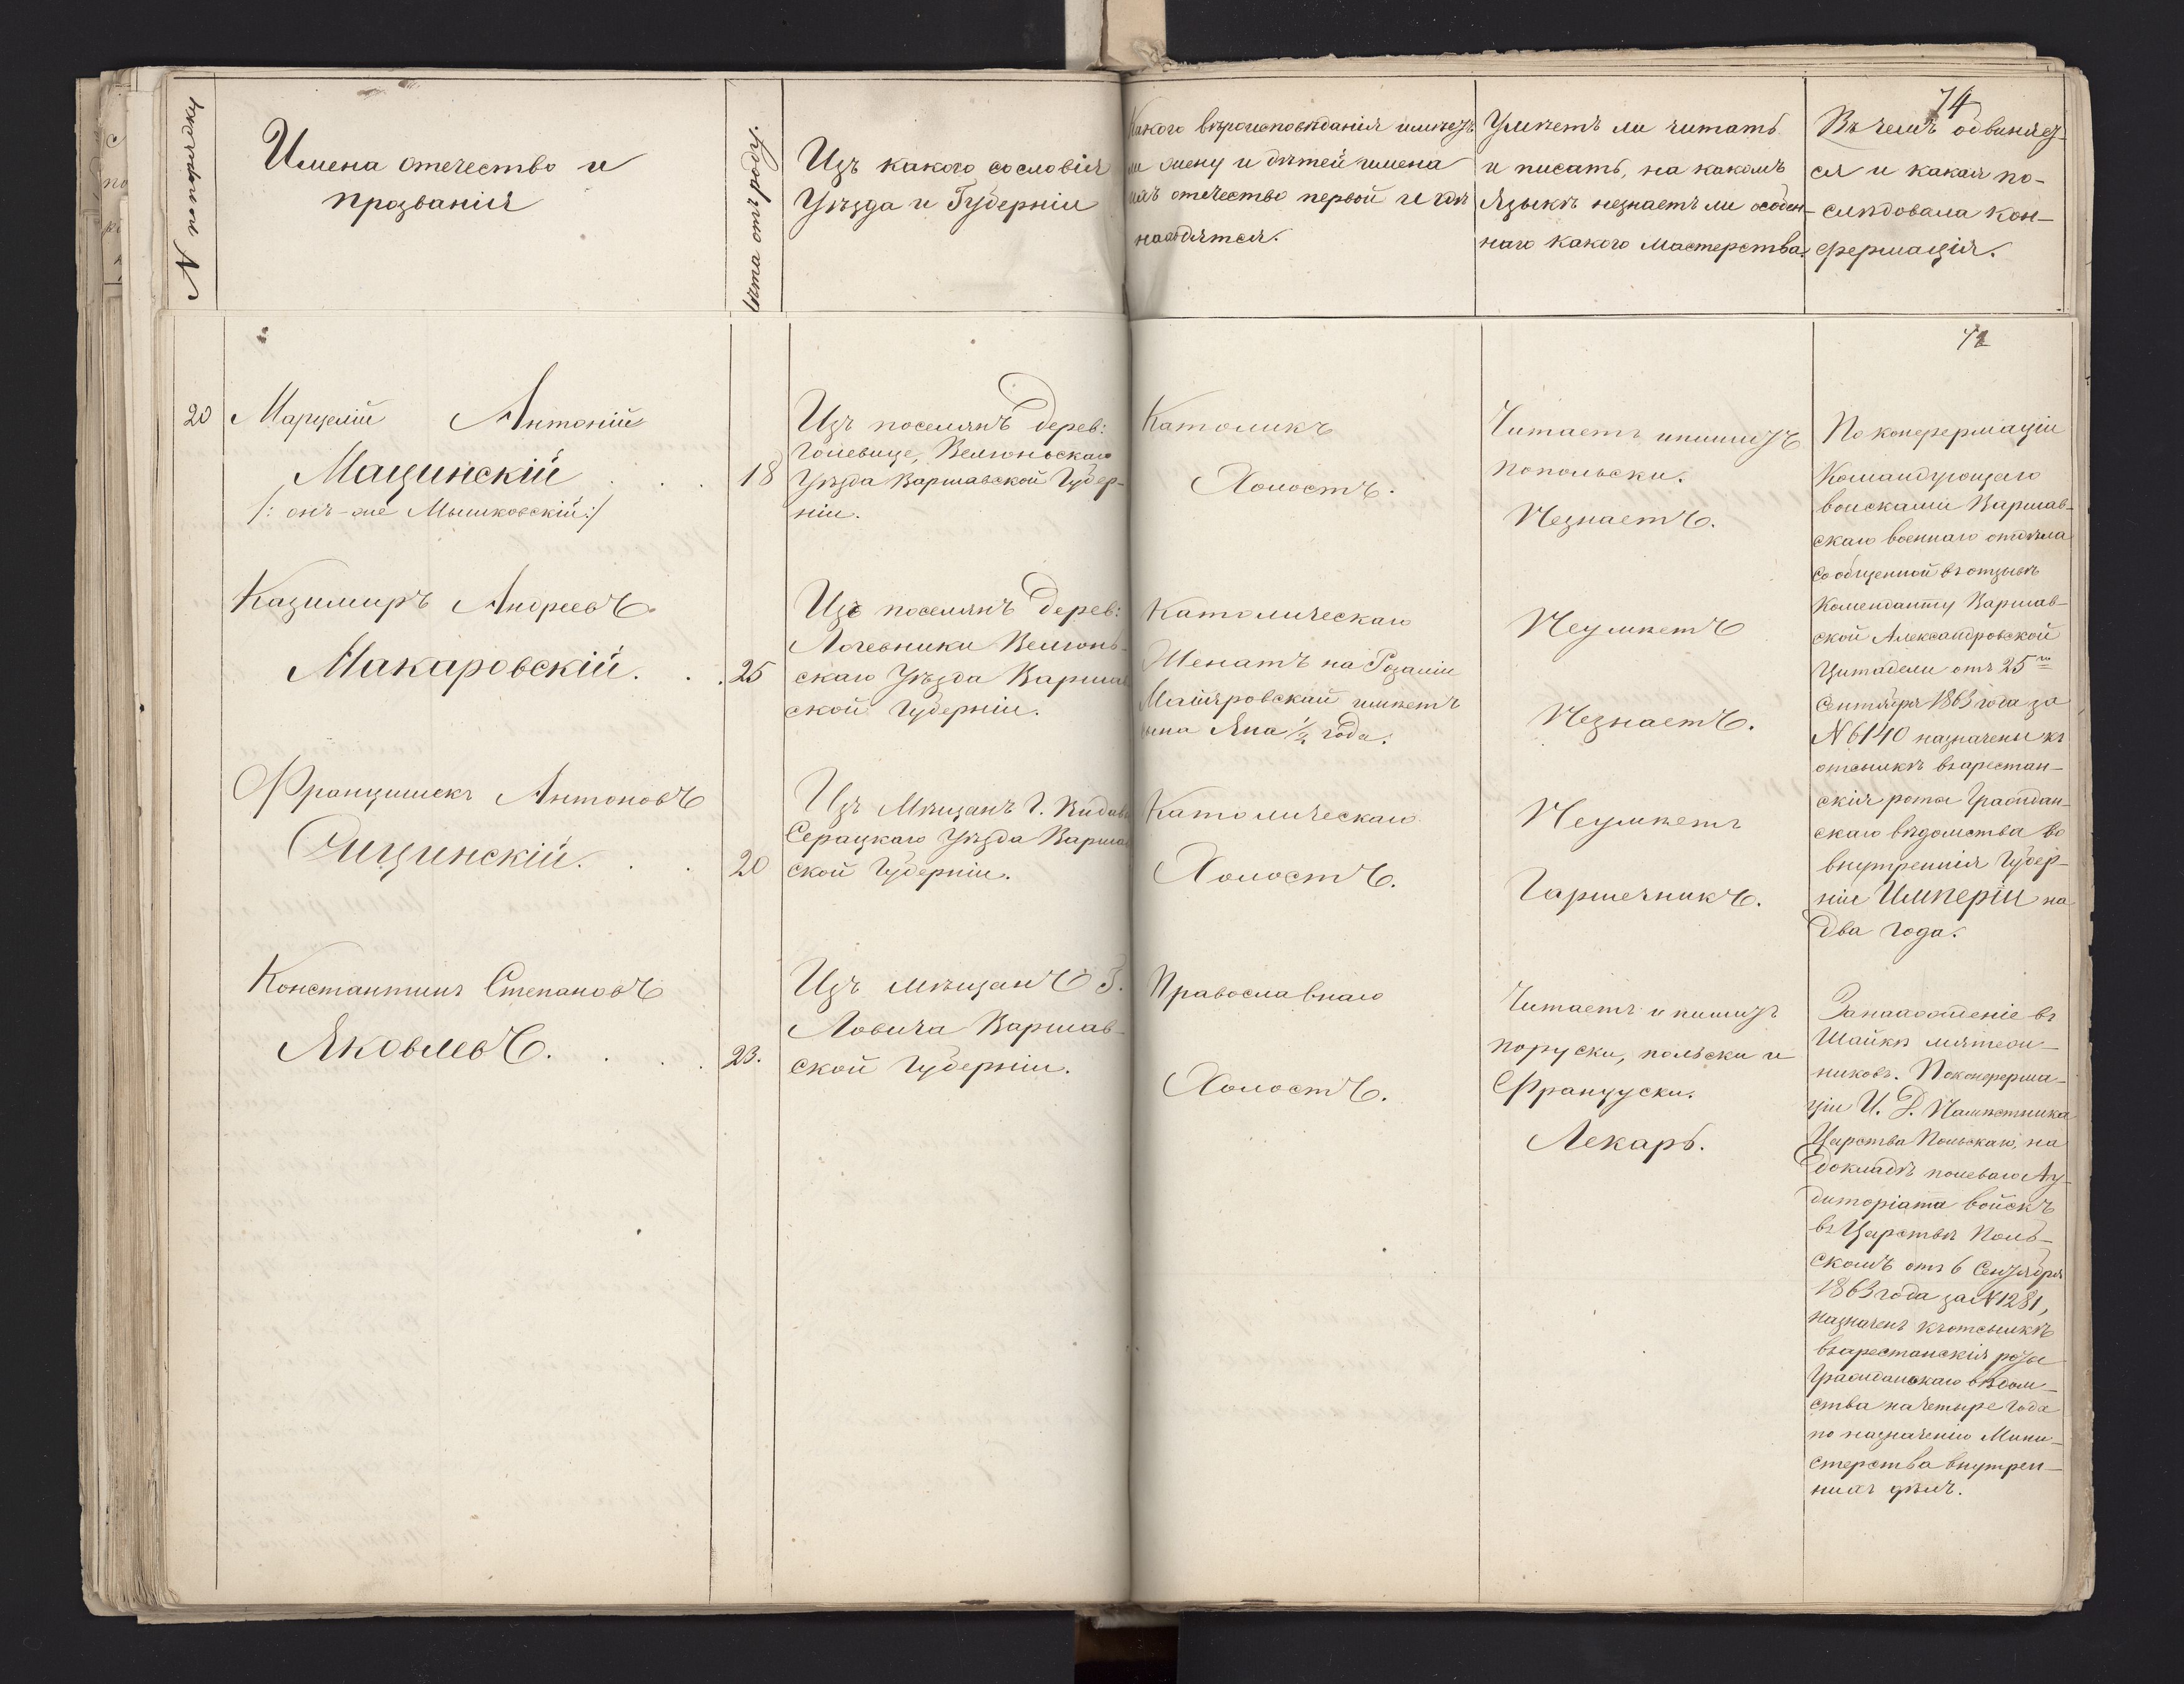 74
№ попорядку
Имена отечество и
прозванія
Лѣта отъ роду.
Изъ какого сословія
Уѣзда и Губерніи
Какого вѣроисповѣданія имѣетъ
ли жену и дѣтей имена
ихъ отечество первой и гдѣ
находятся.
Умѣетъ ли читать
и писать, на какомъ
Языкѣ незнаетъ ли особен-
наго какого мастерства.
Въ чемъ обвиняет-
ся и какая по-
слѣдовала кон-
фермація.
20
Марцелій Антоній
Мацинскій . . .
/: онъ-же Мышковскій :/
18
Изъ поселянъ Дерев:
Голевице, Велюньскаго
Уѣзда Варшавской Губер-
ніи.
Католикъ
Холостъ.
Читаетъ и пишетъ
попольски.
Незнаетъ.
По конфермаціи
Командующаго
войсками Варшав-
скаго военнаго отдѣла
сообщенной въ отзывѣ
Коменданту Варшав-
ской Александровской
Цитадели отъ 25го
Сентября 1863 года за
№ 6140 назначены къ
отсылкѣ въ арестан-
скія роты Граждан-
скаго вѣдомства во
внутреннія Губер-
ніи Имперіи на
два года.
Казимиръ Андреевъ
Макаровскій. . .
25
Изъ поселянъ Дерев:
Лагевники Велюнь-
скаго Уѣзда Варшав
ской Губерніи.
Католическаго
Женатъ на Розаліи
имѣетъ
сына Яна ½ года.
Неумѣетъ
Незнаетъ.
Францишекъ Антоновъ
. . .
20
Изъ Мѣщанъ Г. Видава
Серацкаго Уѣзда Варшав
ской Губерніи.
Католическаго
Холостъ.
Неумѣетъ
Гаршечникъ.
Константинъ Степановъ
Яковлевъ. . . .
23.
Изъ мѣщанъ Г.
Ловича Варшав-
ской Губерніи.
Православнаго
Холостъ.
Читаетъ и пишетъ
поруски, польски и
Француски.
Лекарь.
Занахожденіе въ
Шайкѣ мятеж-
никовъ. Поконферма-
ціи И. Д. Намѣстника
Царства Польскаго, на
докладѣ полеваго Ау-
диторіата войскъ
въ Царствѣ Поль-
скомъ отъ 6 Сентября
1863 года за № 1281,
назначенъ къ отсылкѣ
въ арестанскія роты
Гражданскаго вѣдом-
ства на четыре года
по назначенію Мини-
стерства внутрен-
нихъ дѣлъ.